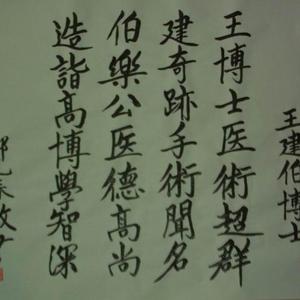 王建伯博士
王博士医術超群
建奇跡手術聞名
伯樂公医德高尚
造詣高博學智深